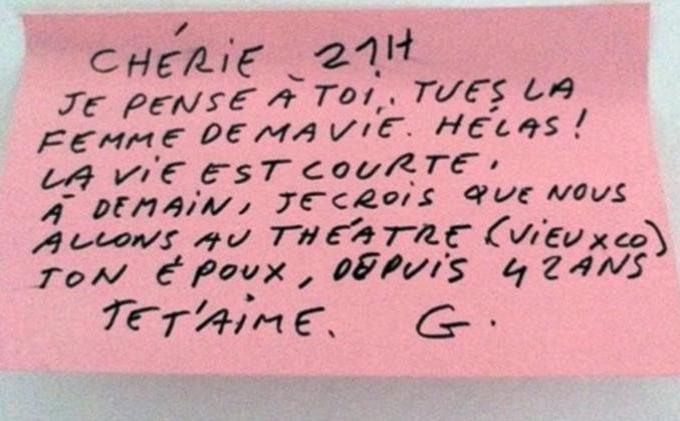 CHÉRIE 21H
JE PENSE À TOI, TU ES LA
FEMME DE MA VIE. HÉLAS!
LA VIE EST COURTE.
À DEMAIN, JE CROIS QUE NOUS
ALLONS AU THÉATRE (VIEUX CO)
TON ÉPOUX, DEPUIS 42 ANS
JE T'AIME. G.